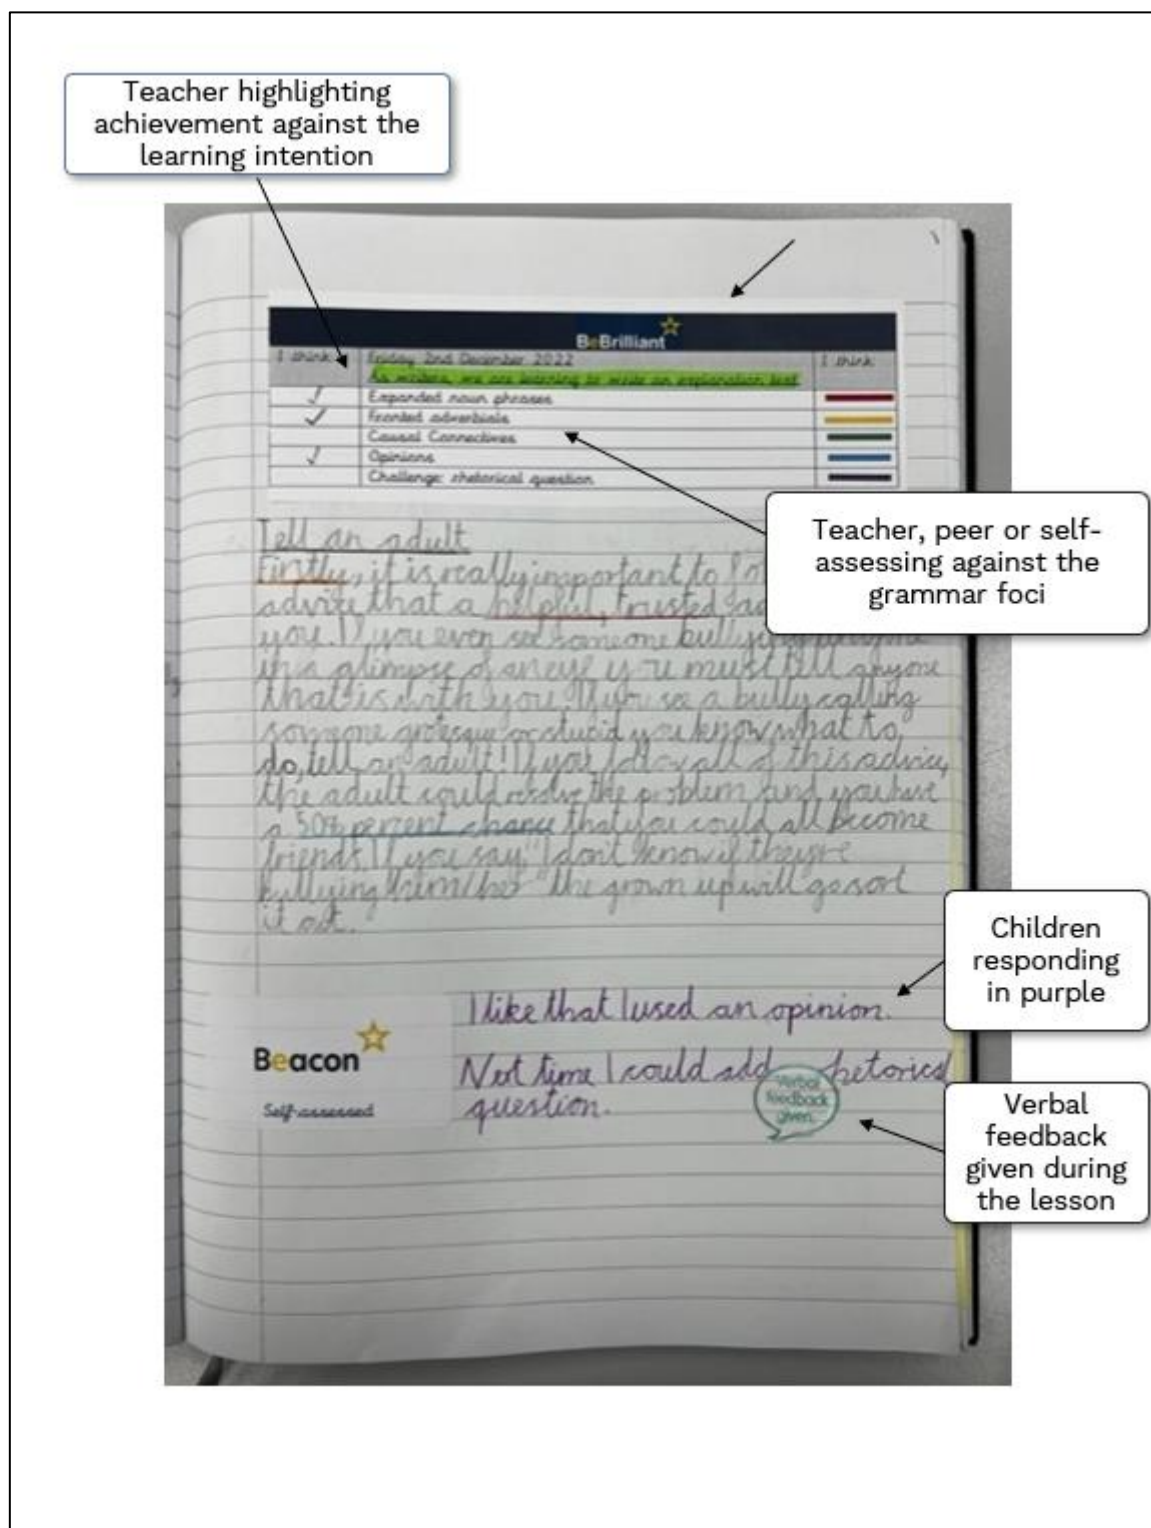 Teacher highlighting
achievement against the
learning intention
BeBrilliant
I think
Friday 2nd December 2022
I think
As writers, we are learning to write an explanation text
Expanded noun phrases
Fronted adverbials
Causal Connectives
Opinions
Challenge: rhetorical question
Teacher, peer or self-
assessing against the
grammar foci
Tell an adult
Firstly, it is really important to
advice that a helpful, trusted
you. If you even see someone bullying
in a glimpse of an eye you must tell anyone
that is with you. If you see a bully calling
someone grotesque or stupid you know what to
do, tell an adult! If you follow all of this advice,
the adult could resolve the problem and you have
a 50% percent chance that you could all become
friends. If you say, "I don't know if they're
bullying him/her" the grown up will go sort
it out.
Children
responding
in purple
I like that I used an opinion.
Beacon
Self-assessed
Next time I could add rhetorical
question.
Verbal
feedback
given.
Verbal
feedback
given during
the lesson